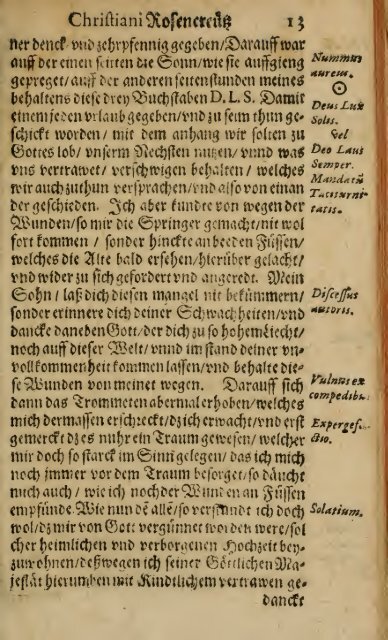 Christiani Rosencreütz 13
ner denck- vnd zehrpfennig gegeben/ Darauff war
auff der einen seitten die Sonn/wie sie auffgieng
gepreget/ auff der anderen seiten stunden meines
behaltens diese drey Buchstaben D. L. S. Damit
einem jeden vrlaub gegeben/vnd zu seim thun ge-
schickt worden/ mit dem anhang wir solten zu
Gottes lob/ vnserm Nechsten nutzen/ vnnd was
vns vertrawet/ verschwigen behalten/ welches
wir auch zuthun versprachen/ vnd also von einan
der geschieden. Ich aber kundte von wegen der
Wunden/so mir die Springer gemacht/nit wol
fort kommen/ sonder hinckte an beeden Füssen/
welches die Alte bald ersehen/hierüber gelacht/
vnd wider zu sich gefordert vnd angeredt. Mein
Sohn/ laß dich diesen mangel nit bekümmern/
sonder erinnere dich deiner Schwachheiten/vnd
dancke daneben Gott/ der dich zu so hohem Liecht/
noch auff dieser Welt/ vnnd im stand deiner vn-
vollkommenheit kommen lassen/vnd behalte die-
se Wunden von meinet wegen. Darauff sich
dann das Trommeten abermal erhoben/welches
mich dermassen erschreckt/dz ich erwacht/vnd erst
gemerckt dz es nuhr ein Traum gewesen/ welcher
mir doch so starck im Sinn gelegen/ das ich mich
noch jmmer vor dem Traum besorget/so däucht
mich auch/ wie ich noch der Wunden an Füssen
empfünde. Wie nun dē alle/ so verstundt ich doch
wol/dz mir von Gott vergünnet worden were/sol
cher heimlichen vnd verborgenen Hochzeit bey-
zuwohnen/deßwegen ich seiner Göttlichen Ma-
jestät hierumben mit Kindtlichem vertrawen ge-
danckt
Nummus
aureus.
☉
Deus Lux
Solis.
vel
Deo Laus
Semper.
Mandatũ
Taciturni-
tatis.
Discessus
autoris.
Vulnus ex
compedib.
Expergef-
ctio.
Solatium.